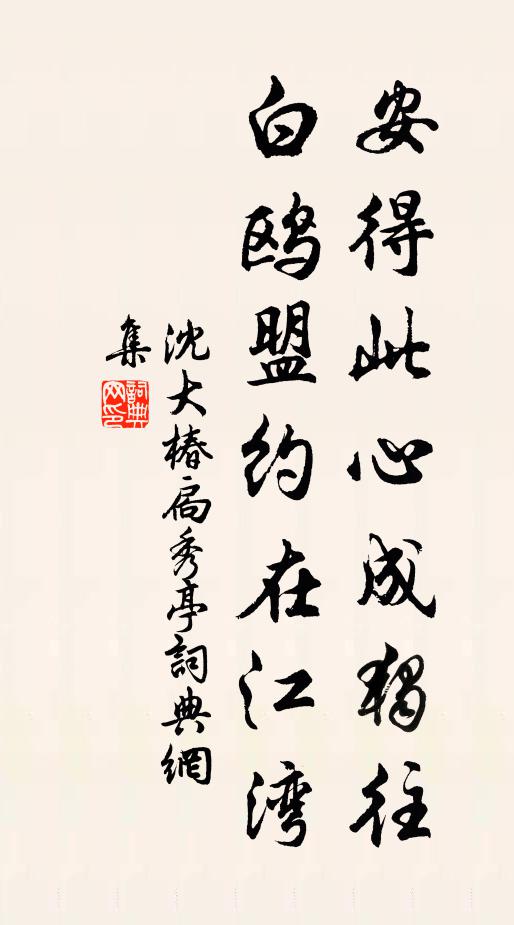 安得此心成獨往
白鸥盟约在江湾
沈大椿扃秀亭詞典網
集
詞典網印